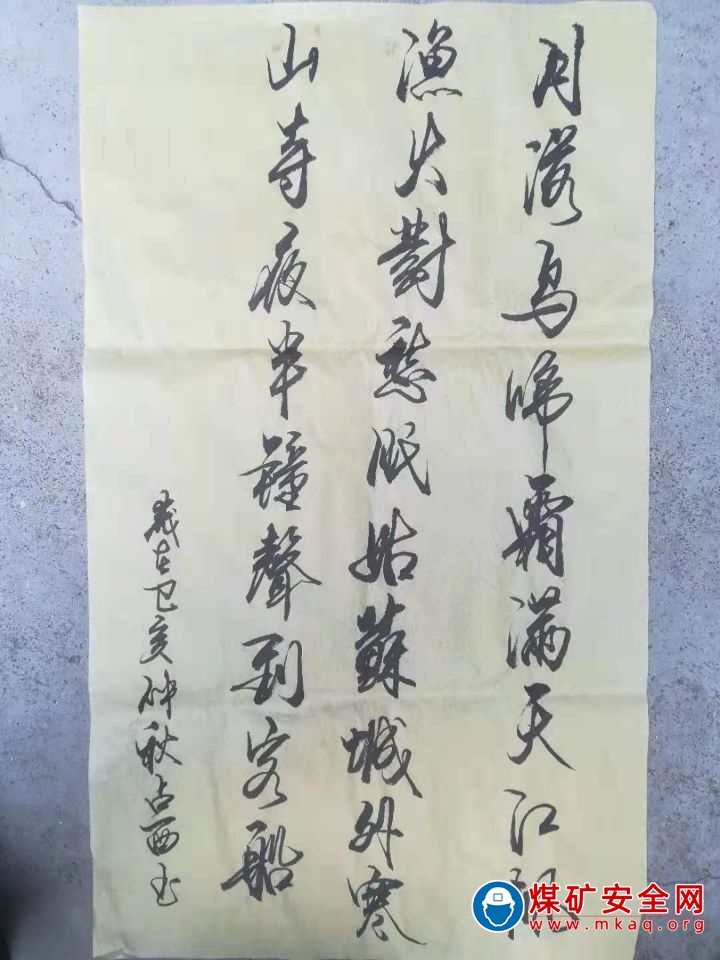 月落烏啼霜滿天江楓
漁火對愁眠姑蘇城外寒
山寺夜半鐘聲到客船
歲在己亥仲秋占西书
煤矿安全网
www.mkaq.org